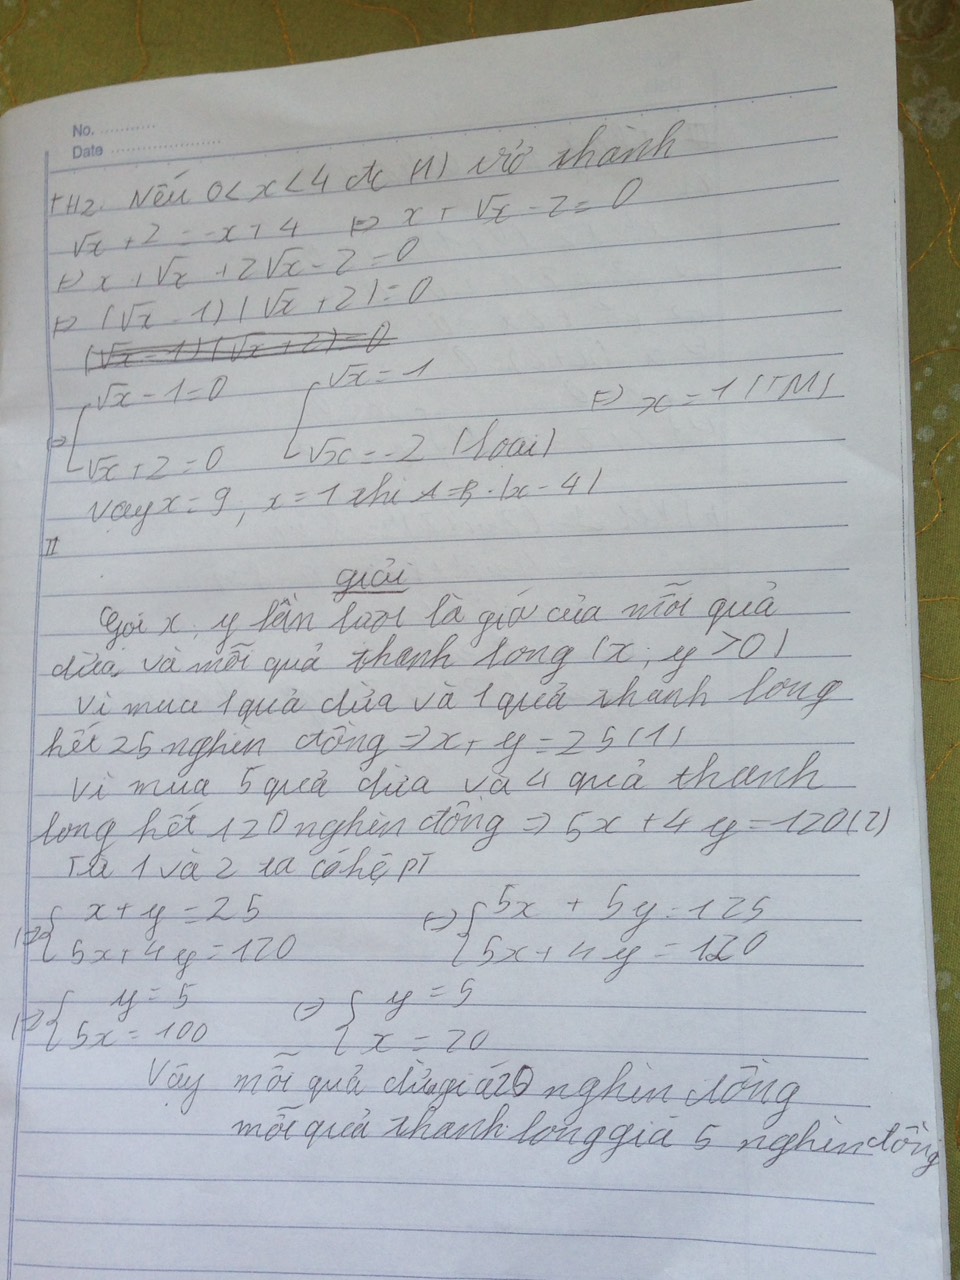 No. ...........
Date .....................
TH2. Nếu 0<x<4 đk (1) trở thành
√x + 2 = -x + 4 ⇔ x + √x - 2 = 0
⇔ x + √x + 2√x - 2 = 0
⇔ (√x - 1) (√x + 2) = 0
(√x - 1) (√x + 2) = 0
⇔ [ √x - 1 = 0 [ √x = 1 ⇔ x = 1 (TM)
√x + 2 = 0 √x = -2 (loại)
Vậy x = 9, x = 1 thì A = B.|x - 4|
II
giải
Gọi x, y lần lượt là giá của mỗi quả
dừa và mỗi quả thanh long (x; y >0)
Vì mua 1 quả dừa và 1 quả thanh long
hết 25 nghìn đồng => x + y = 25 (1)
Vì mua 5 quả dừa và 4 quả thanh
long hết 120 nghìn đồng => 5x + 4y = 120 (2)
Từ 1 và 2 ta có hệ PT
⇔ { x + y = 25 ⇔ { 5x + 5y = 125
5x + 4y = 120 5x + 4y = 120
⇔ { y = 5 ⇔ { y = 5
5x = 100 x = 20
Vậy mỗi quả dừa giá 20 nghìn đồng
mỗi quả thanh long giá 5 nghìn đồng